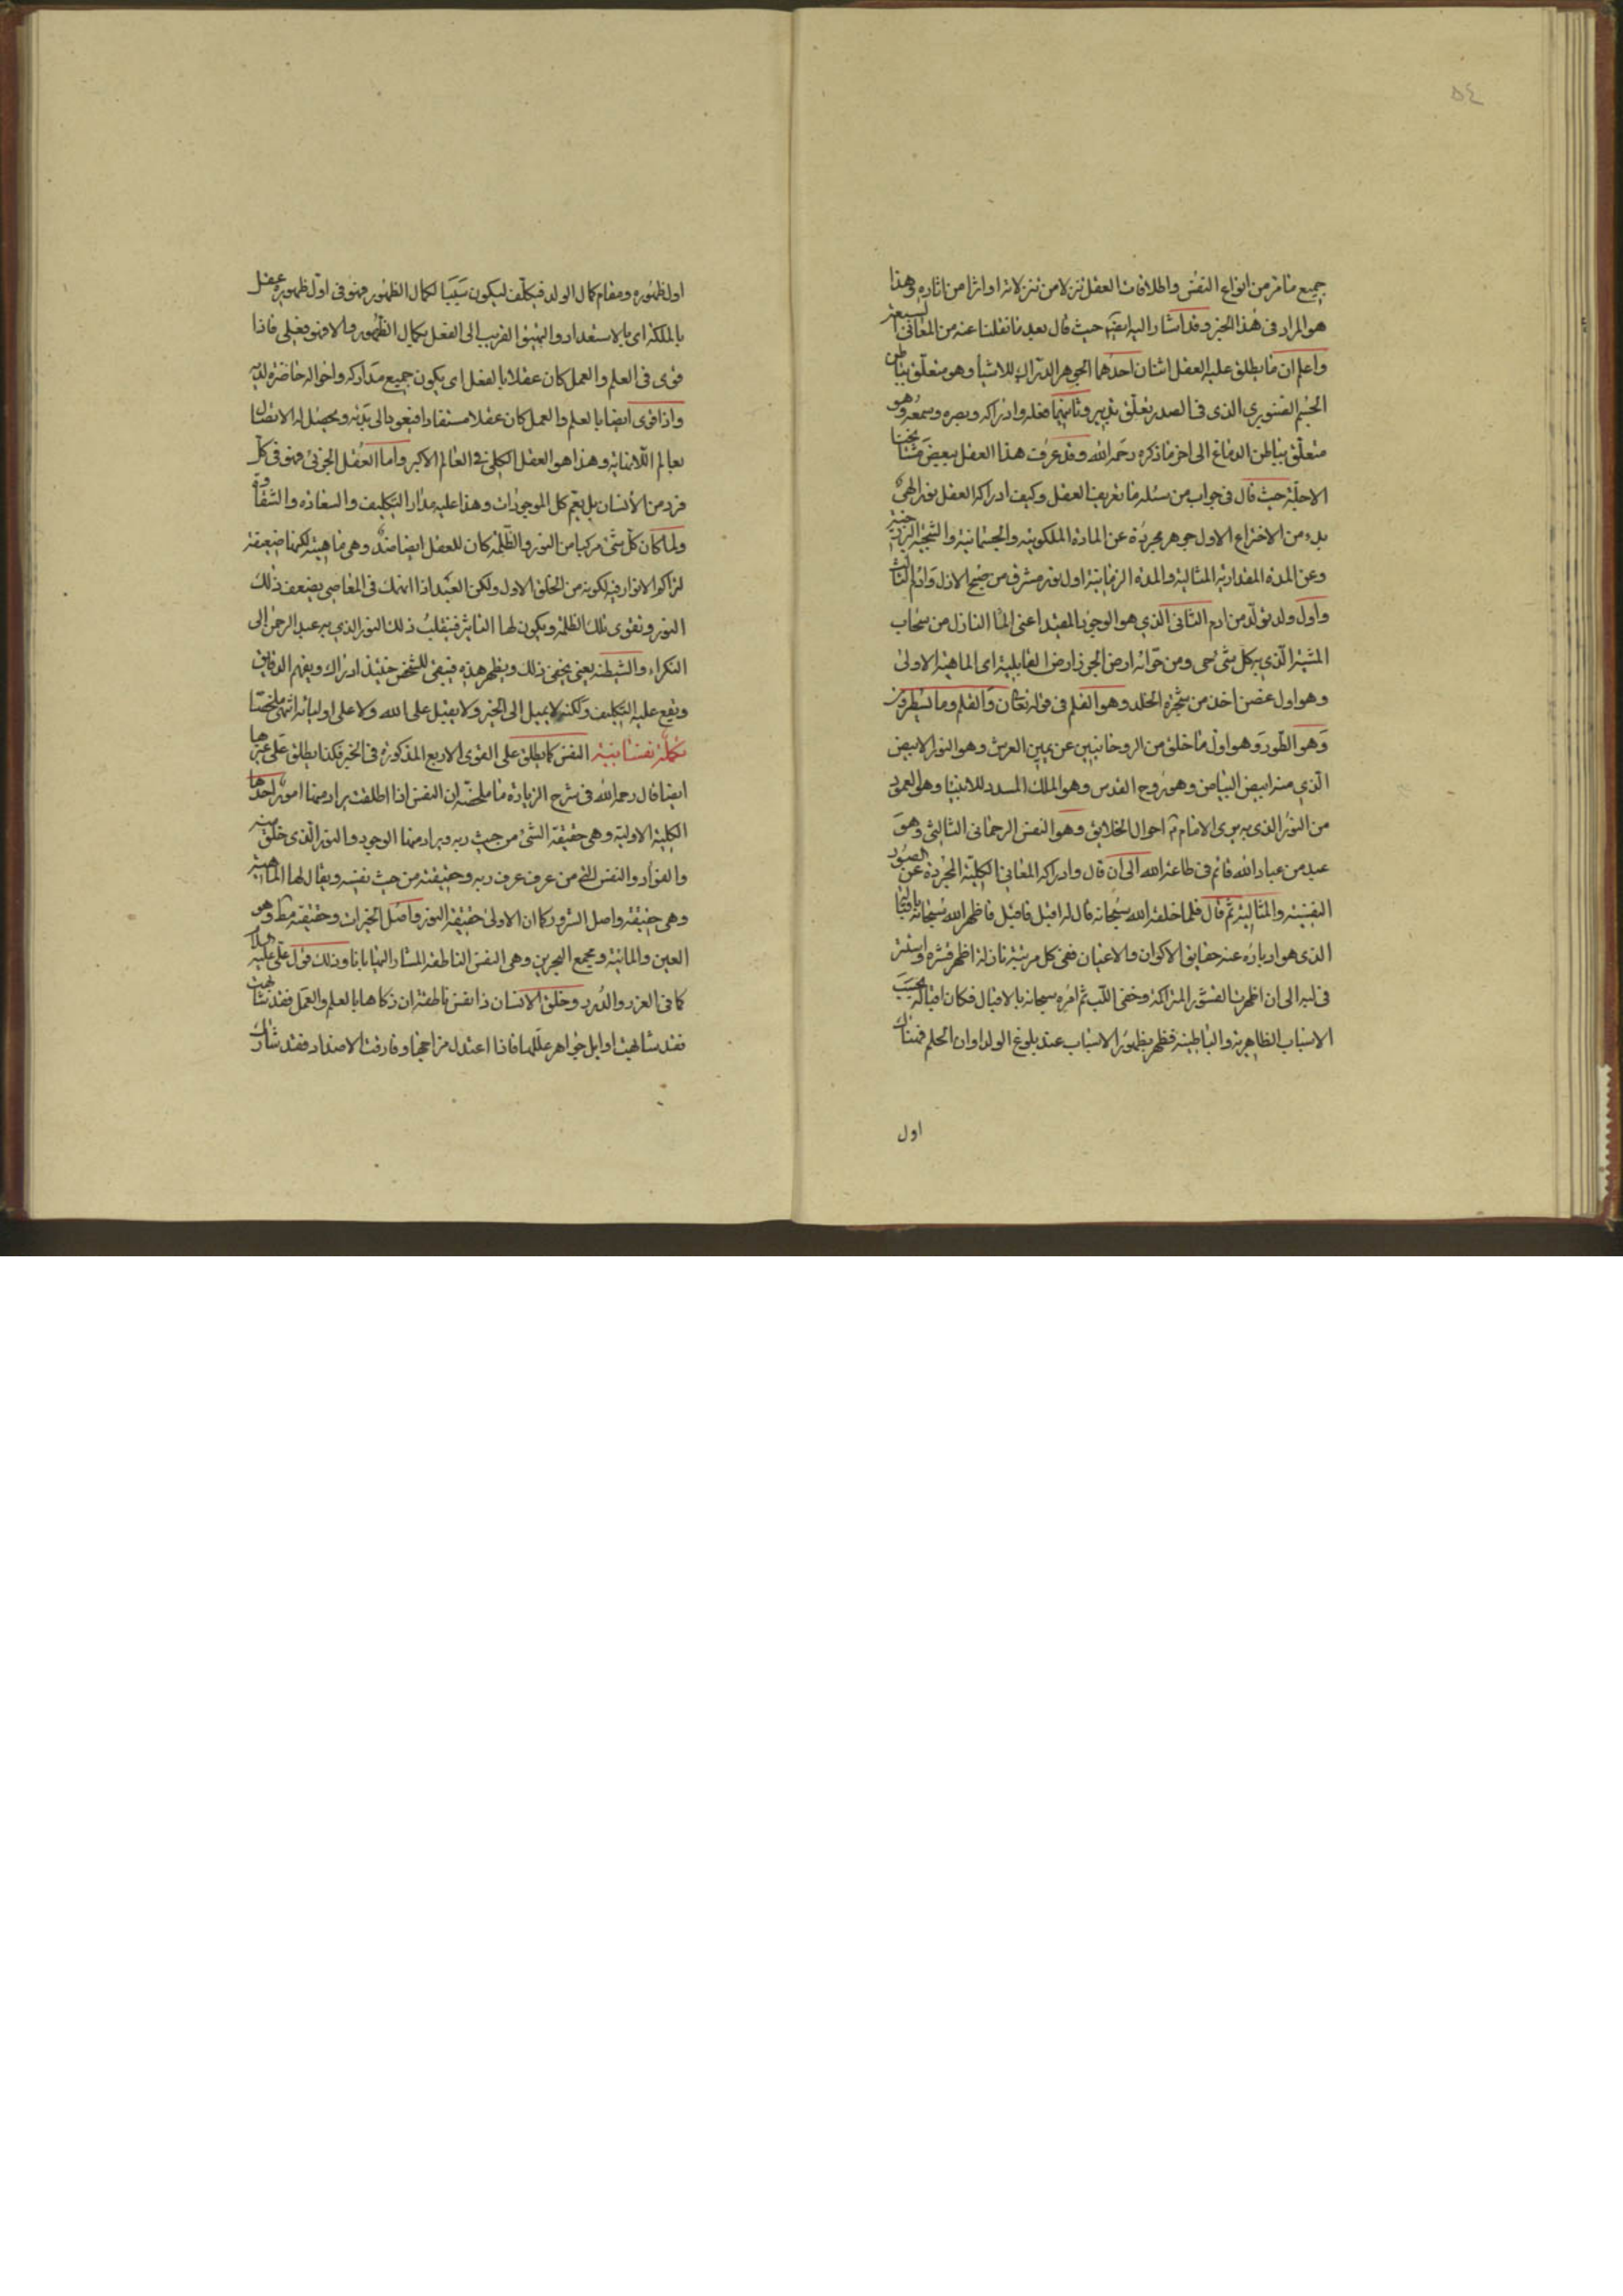 ٥٤
جميع ما مر من انواع النفس واطلاقات العقل تنزلا من تنزلاته او اثرا من اثاره وهذا
هو المراد فى هذا الخبر وقد اشار اليه ايضا حيث قال بعد ما نقلنا عنه من المعانى السبعة
واعلم ان ما يطلق عليه العقل اثنان احدهما الجوهر الدراك للاشيا وهو متعلق بباطن
الجسم الصنوبري الذى فى الصدر تعلق تدبير وثانيهما فعله وادراكه وبصره وسمعه وهو
متعلق بباطن الدماغ الى اخر ما ذكره رحمه الله وقد عرف هذا العقل بعض مشايخنا
الاجلة حيث قال فى جواب من سئله ما تعريف العقل وكيف ادراكه العقل نور الهى
بدء من الاختراع الاول جوهر مجردة عن المادة الملكوتية والجسمانية والشجية البرزخية
وعن المدة المقدارية المثالية والمدة الزمانية اول نور مشرق من صبح الازل وادم الثالث
واول ولد تولد من ادم الثانى الذي هو الوجود المقيد اعنى الما النازل من سحاب
المشية الذي به كل شى حى ومن حوائه ارض الجرز ارض القابلية اى الماهية الاولى
وهو اول غصن اخذ من شجرة الخلد وهو القلم فى قوله تعالى ن والقلم وما يسطرون
وهو الطور وهو اول ما خلق من الروحانيين عن يمين العرش وهو النور الابيض
الذي منه ابيض البياض وهو روح القدس وهو الملك المسدد للانبيا وهو العمود
من النور الذى به يرى الامام احوال الخلايق وهو النفس الرحمانى الثالثى وهو
عبد من عباد الله قائم فى طاعة الله الى ان قال وادراكه المعاني الكلية المجردة عن الصور
النفسية والمثالية ثم قال فلما خلقه الله سبحانه قال له اقبل فاقبل فاظهر الله سبحانه باقباله
الذى هو ادباره عنه حقايق الاكوان والاعيان ففى كل مرتبة نازلة اظهر قشره واستتر
فى لبه الى ان اظهرت القشور المتراكمة وخفى اللب ثم امره سبحانه بالاقبال فكان اقباله بحسب
الاسباب الظاهرية والباطنية فظهر بظهور الاسباب عند بلوغ الولد اوان الحلم فهناك
اول
اول ظهوره ومقام كمال الولد فيكلف ليكون سببا لكمال الظهور وهو فى اول ظهوره عقل
بالملكة اى بالاستعداد والتهيؤ القريب الى الفعل بكمال الظهور والا فهو فعلى فاذا
قوى فى العلم والعمل كان عقلا بالفعل اى يكون جميع مداركه واحواله حاضرة لديه
واذا قوى ايضا بالعلم والعمل كان عقلا مستفادا فيعود الى بدئه ويحصل له الاتصال
بعالم اللانهاية وهذا هو العقل الكلى فى العالم الاكبر واما العقل الجزئى فهو فى كل
فرد من الانسان بل يعم كل الموجودات وهذا عليه مدار التكليف والسعادة والشقاوة
ولما كان كل شى مركبا من النور والظلمة كان للعقل ايضا ضد وهى ماهيته لكنها ضعيفة
لتراكم الانوار فيه لكونه من الخلق الاول ولكن العبد اذا انهمك فى المعاصى يضعف ذلك
النور وتقوى تلك الظلمة ويكون لها التاثير فينقلب ذلك النور الذي به عبد الرحمن الى
النكراء والشيطنة يعنى يخفى ذلك ويظهر هذه فيبقى للشخص حينئذ ادراك ويفهم الدقايق
ويقع عليه التكليف ولكنه لا يميل الى الخير ولا يقبل على الله ولا على اوليائه انتهى ملخصا
تكملة نفسانية النفس كما يطلق على القوى الاربع المذكورة فى الخبر فكذا يطلق على غيرها
ايضا قال رحمه الله فى شرح الزيارة ما ملخصه ان النفس اذا اطلقت يراد منها امور احدها
الكلية الاولية وهى حقيقة الشئ من حيث ربه ويراد منها الوجود والنور الذى خلق منه
والفؤاد والنفس التى من عرف عرف ربه وحقيقته من حيث نفسه ويقال لها الماهية
وهى حقيقة واصل الشرور كما ان الاولى حقيقة النور واصل الخيرات وحقيقته وهو
العين والمائية ومجمع البحرين وهى النفس الناطقة المشار اليها بانا وذلك قول على عليه السلام
كما فى الغرر والدرر وخلق الانسان ذا نفس ناطقة ان زكاها بالعلم والعمل فقد شابهت
فقد شابهت اوايل جواهر عللها فاذا اعتدل مزاجها وفارقت الاضداد فقد شارك